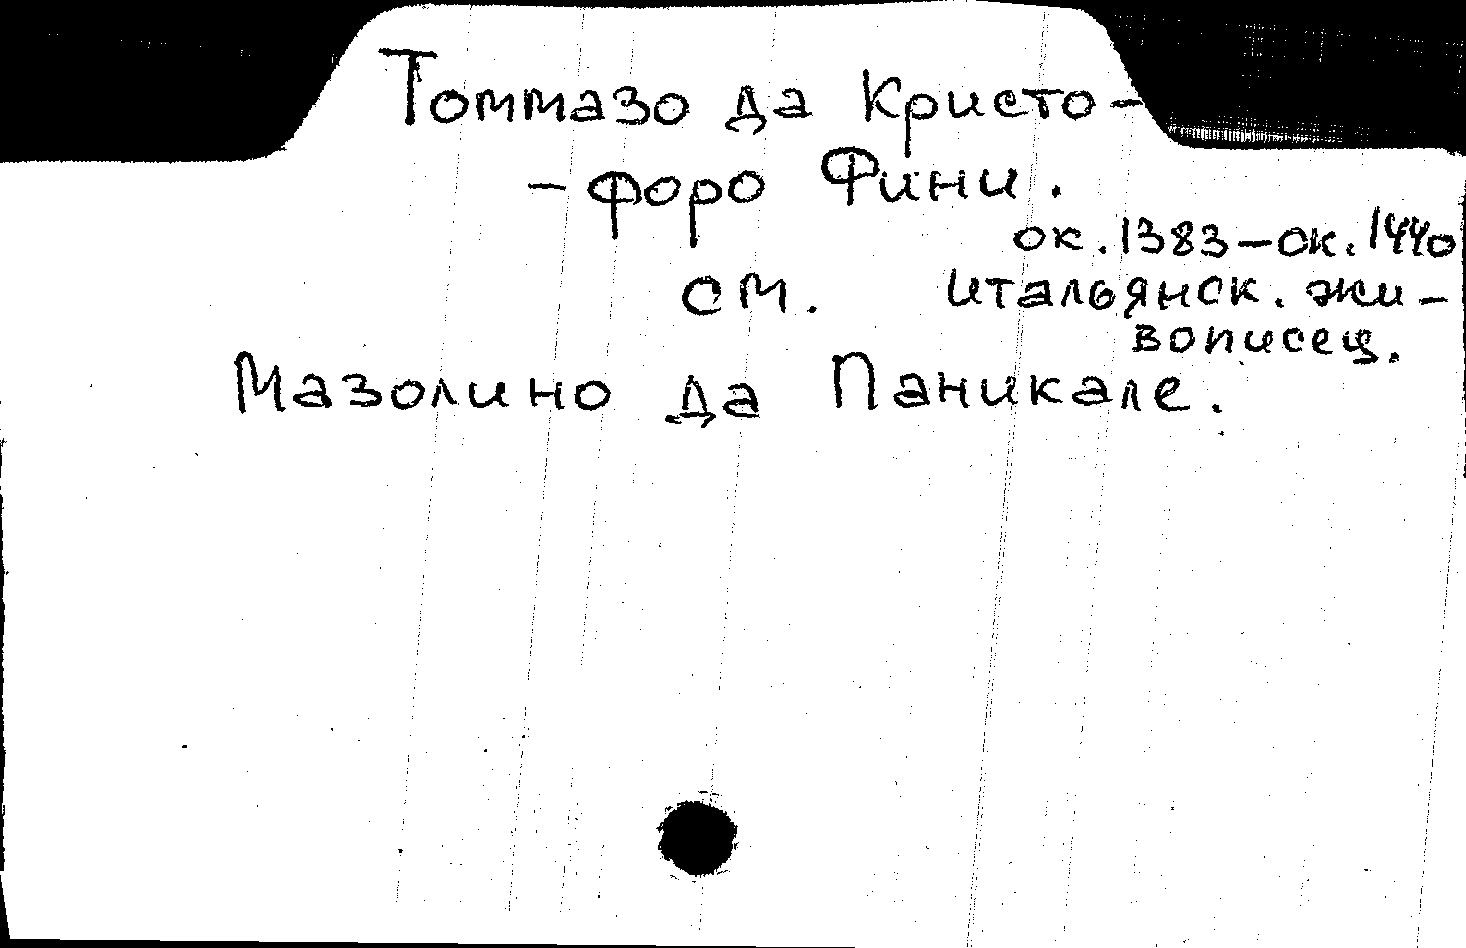 Томмазо да Кристо-
-форо Фини.
ок. 1383-ок. 1440
см. итальянск. жи-
вописец.
Мазолино да Паникале.